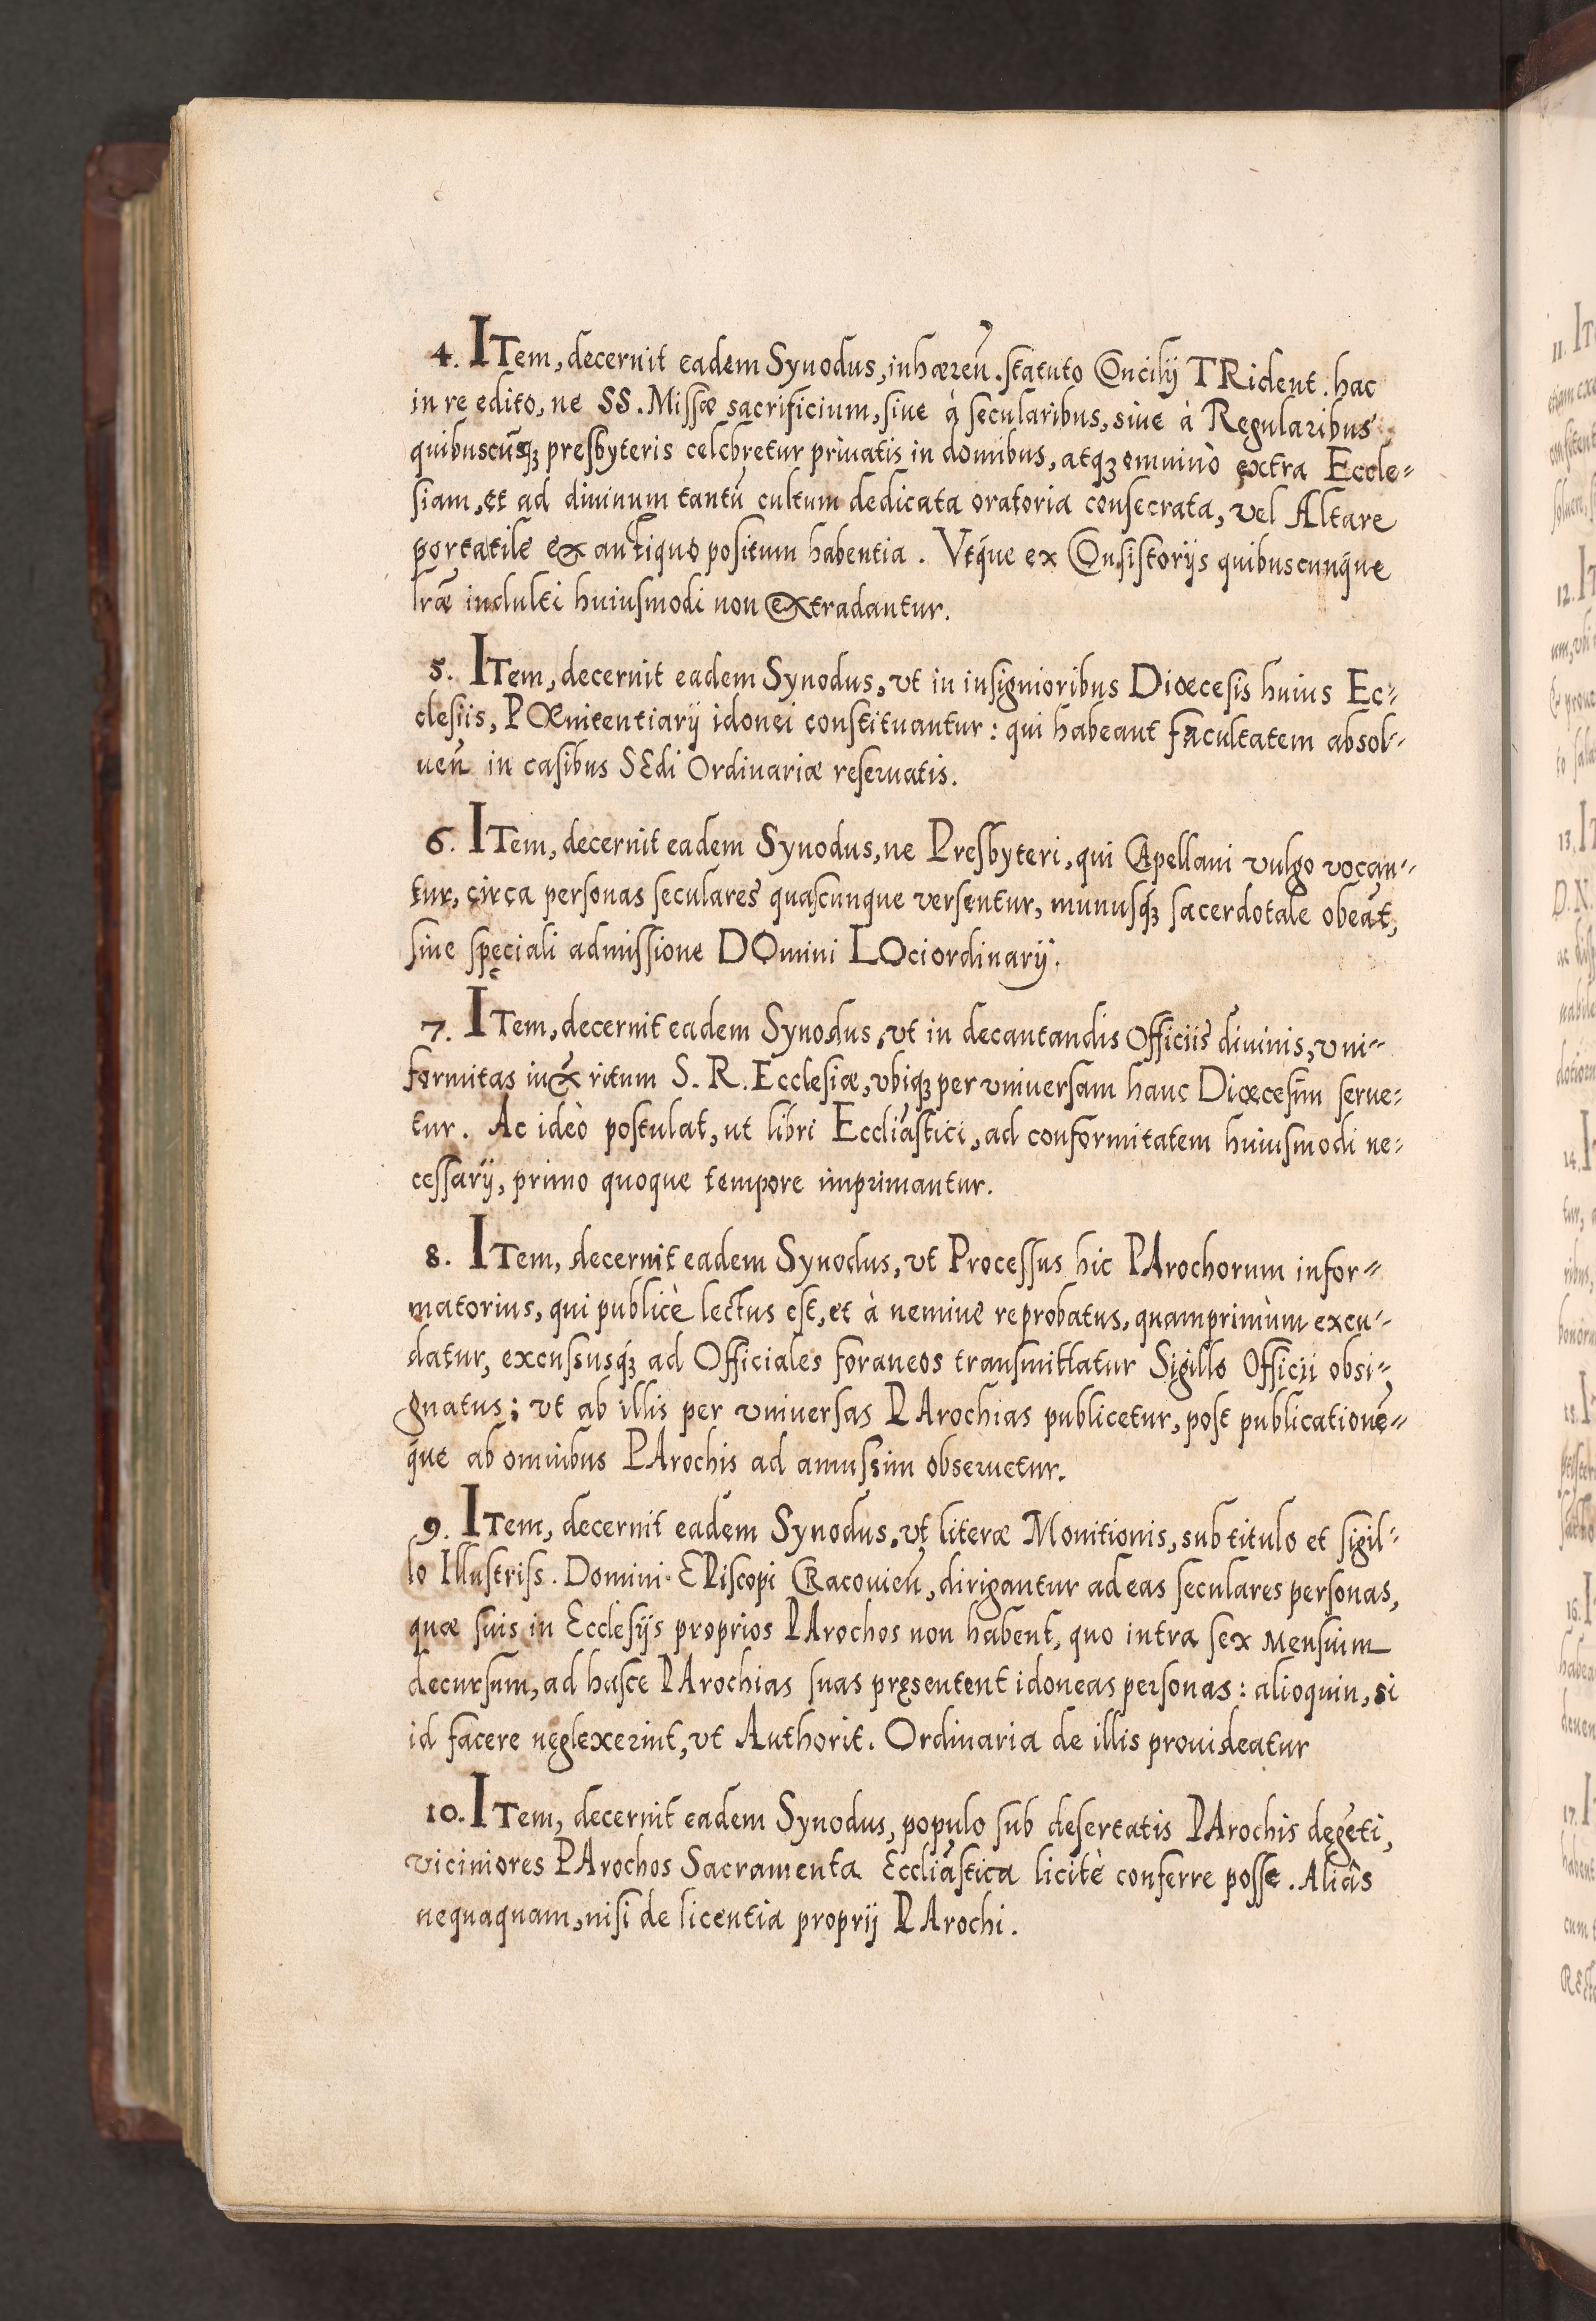 4. ITem, decernit eadem Synodus, inhæreñ. statuto COncilij TRident. hac
in re edito, ne SS. Missæ sacrificium, siue à secularibus, siue à Regularibus
quibuscũsq; presbyteris celebretur priuatis in domibus, atq; omninò extra Eccle=
siam, et ad diuinum tantũ cultum dedicata oratoria consecrata, vel Altare
portatile ex antiquo positum habentia. Vtq́ue ex COnsistorijs quibuscunq́ue
lræ indulti huiusmodi non extradantur.
5. ITem, decernit eadem Synodus, vt in insignioribus Diœcesis huius Ec=
clesiis, POEnitentiarij idonei constituantur: qui habeant facultatem absol=
ueñ in casibus SEdi Ordinariæ reseruatis.
6. ITem, decernit eadem Synodus, ne Presbyteri, qui CApellani vulgo vocan=
tur, circa personas seculares quascunque versentur, munusq́; sacerdotale obeãt,
sine speciali admissione DOmini LOciordinarij.
7. ITem, decernit eadem Synodus, vt in decantandis Officiis diuinis, vni=
formitas iuxta ritum S. R. Ecclesiæ, vbiq; per vniuersam hanc Diœcesim serue=
tur. Ac ideò postulat, ut libri Eccliãstici, ad conformitatem huiusmodi ne=
cessarij, primo quoque tempore imprimantur.
8. ITem, decernit eadem Synodus, vt Processus hic PArochorum infor=
matorius, qui publicè lectus est, et à nemine reprobatus, quamprimùm excu=
datur, excussusq́; ad Officiales foraneos transmittatur Sigillo Officii obsi=
gnatus; vt ab illis per vniuersas PArochias publicetur, post publicationẽ=
q́ue ab omnibus PArochis ad amussim obseruetur.
9. ITem, decernit eadem Synodus, vt literæ Monitionis, sub titulo et sigil=
lo Illustriss. Domini EPiscopi CRacouieñ, dirigantur ad eas seculares personas,
quæ suis in Ecclesijs proprios PArochos non habent, quo intra sex Mensium
decursum, ad hasce PArochias suas pręsentent idoneas personas: alioquin, si
id facere neglexerint, vt Authorit. Ordinaria de illis prouideatur
10. ITem, decernit eadem Synodus, populo sub desertatis PArochis degẽti,
viciniores PArochos Sacramenta Eccliãstica licitè conferre posse. Aliâs
nequaquam, nisi de licentia proprij PArochi.